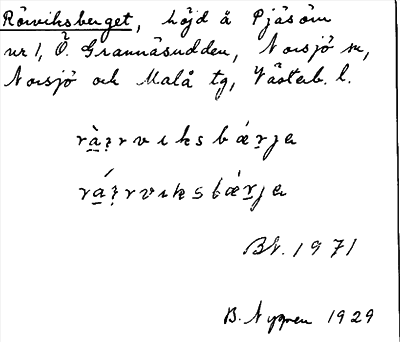 Rörviksberget, höjd å Pjäsöm
nr 1, Ö. Grannäsudden, Norsjö sn,
Norsjö och Malå tg, Västerb. l.
rà̠ʒrviksbǽr̠ja
rá̠ʒrviksbǽr̠ja
Bt. 1971
B. Nygren 1929